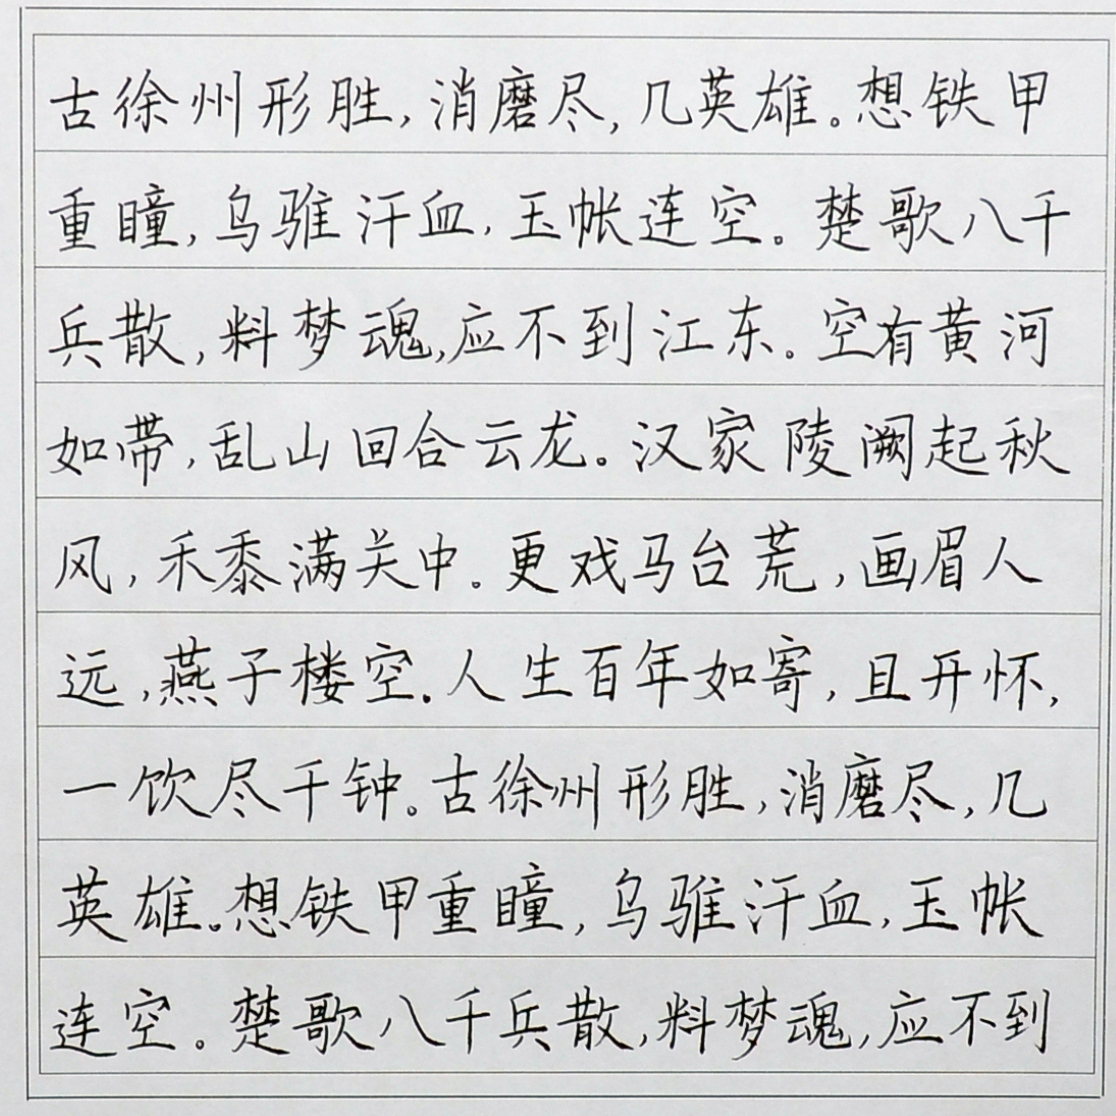 古徐州形胜,消磨尽,几英雄。想铁甲
重瞳,乌骓汗血,玉帐连空。楚歌八千
兵散,料梦魂,应不到江东。空有黄河
如带,乱山回合云龙。汉家陵阙起秋
风,禾黍满关中。更戏马台荒,画眉人
远,燕子楼空.人生百年如寄,且开怀,
一饮尽千钟。古徐州形胜,消磨尽,几
英雄。想铁甲重瞳,乌骓汗血,玉帐
连空。楚歌八千兵散,料梦魂,应不到